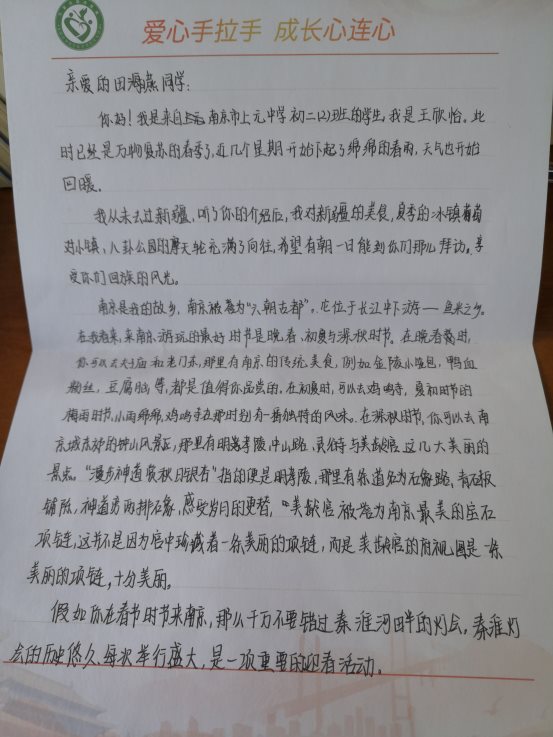 爱心手拉手 成长心连心
亲爱的田海燕同学:
你好!我是来自南京市上元中学初二(2)班的学生,我是王欣怡。此
时已经是万物复苏的春季了,近几个星期开始下起了绵绵的春雨,天气也开始
回暖。
我从未去过新疆,听了你的介绍后,我对新疆的美食,夏季的冰镇葡萄
对小镇,八卦公园的摩天轮充满了向往,希望有朝一日能到你们那儿拜访,享
受你们回族的风光。
南京是我的故乡,南京被誉为“六朝古都”。它位于长江中下游——鱼米之乡。
在我看来,来南京游玩的最好时节是晚春、初夏与深秋时节。在晚春时,
你可以去夫子庙和老门东,那里有南京的传统美食,例如金陵小笼包,鸭血
粉丝,豆腐脑等,都是值得你品尝的。在初夏时,可以去鸡鸣寺,夏初时节的
梅雨时节,小雨绵绵,鸡鸣寺在那时别有一番独特的风味。在深秋时节,你可以去南
京城东郊的钟山风景区,那里有明孝陵,中山陵,灵谷寺与美龄宫这几大美丽的
景点。“漫步神道 秋日银杏”指的便是明孝陵,那里有条道名为石象路,青石板
铺陈,神道旁两排石象,感受岁月的更替,“美龄宫被誉为南京最美的宝石
项链,这并不是因为宫中珍藏着一条美丽的项链,而是美龄宫的俯视图是一条
美丽的项链,十分美丽。
假如你在春节时节来南京,那么千万不要错过秦淮河畔的灯会,秦淮灯
会的历史悠久,每次举行盛大,是一项重要的迎春活动。